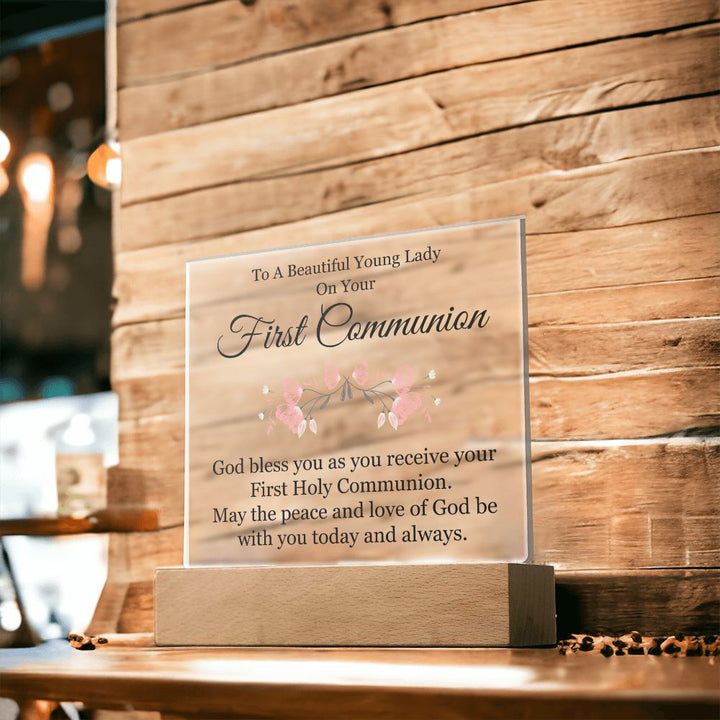 To A Beautiful Young Lady
On Your
First Communion
God bless you as you receive your
First Holy Communion.
May the peace and love of God be
with you today and always.